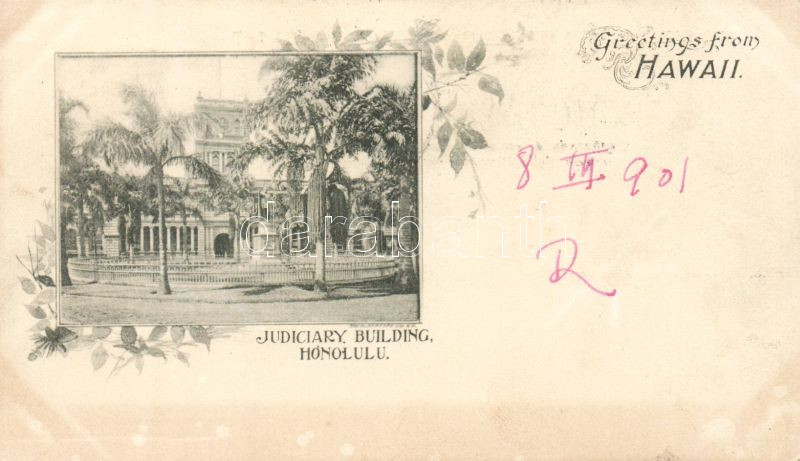 Greetings from
HAWAII.
8 VI 901
R
darabanth
JUDICIARY BUILDING,
HONOLULU.